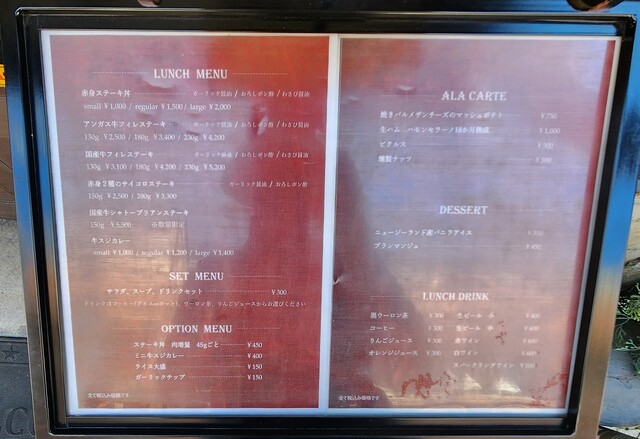 LUNCH MENU
赤身ステーキ丼 ガーリック醤油 / おろしポン酢 / わさび醤油
small ￥1,000 / regular ￥1,500 / large ￥2,000
アンガス牛フィレステーキ ガーリック醤油 / おろしポン酢 / わさび醤油
130g ￥2,500 / 180g ￥3,400 / 230g ￥4,200
国産牛フィレステーキ ガーリック醤油 / おろしポン酢 / わさび醤油
130g ￥3,100 / 180g ￥4,200 / 230g ￥5,200
赤身２種のサイコロステーキ ガーリック醤油 / おろしポン酢
150g ￥2,500 / 200g ￥3,300
国産牛シャトーブリアンステーキ
150g ￥5,500 ※数量限定
牛スジカレー
small ￥1,000 / regular ￥1,200 / large ￥1,400
SET MENU
サラダ、スープ、ドリンクセット ￥300
ドリンクはコーヒー(アイス・ホット)、ウーロン茶、りんごジュースからお選びください
OPTION MENU
ステーキ丼 肉増量 45gごと ￥450
ミニ牛スジカレー ￥400
ライス大盛 ￥150
ガーリックチップ ￥150
全て税込み価格です
ALA CARTE
焼きパルメザンチーズのマッシュポテト ￥750
生ハム ハモンセラーノ18か月熟成 ￥1,000
ピクルス
燻製ナッツ
DESSERT
ニュージーランド産バニラアイス
ブランマンジェ ￥450
LUNCH DRINK
黒ウーロン茶 ￥300 生ビール 小 ￥400
コーヒー ￥300 生ビール 中 ￥600
りんごジュース ￥300 赤ワイン ￥600
オレンジジュース ￥300 白ワイン ￥600
スパークリングワイン
全て税込み価格です